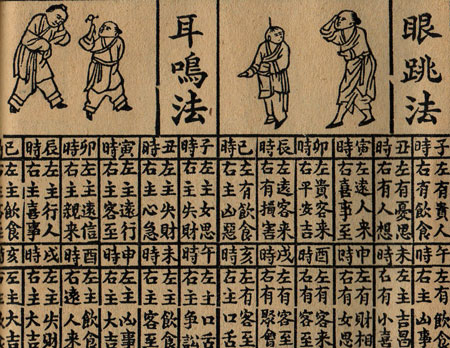 眼跳法
子時
左有貴人
右有飲食
丑時
左有憂思
右有人想
寅時
左遠人来
右喜事至
卯時
左貴客来
右平安吉
辰時
左遠客来
右有損害
巳時
左有飲食
右主凶惡
午時
凶事
未時
左主吉昌
右有小喜
申時
左有財相
右有女思
酉時
左有客至
右有客至
戌時
左有客至
右有聚會
亥時
左有客至
右主口舌
耳鳴法
子時
左主女思
右主失財
丑時
左主失財
右主心急
寅時
左主遠行
右主客至
卯時
左主遠信
右主親来
辰時
左主行人
右主喜事
巳
左主飲食
午時
左主口舌
右主爭訟
未時
左主
客至
申時
左主凶事
右主大吉
酉時
飲食
右遠人来
戌時
左主失財
右主大吉
亥
左主大吉